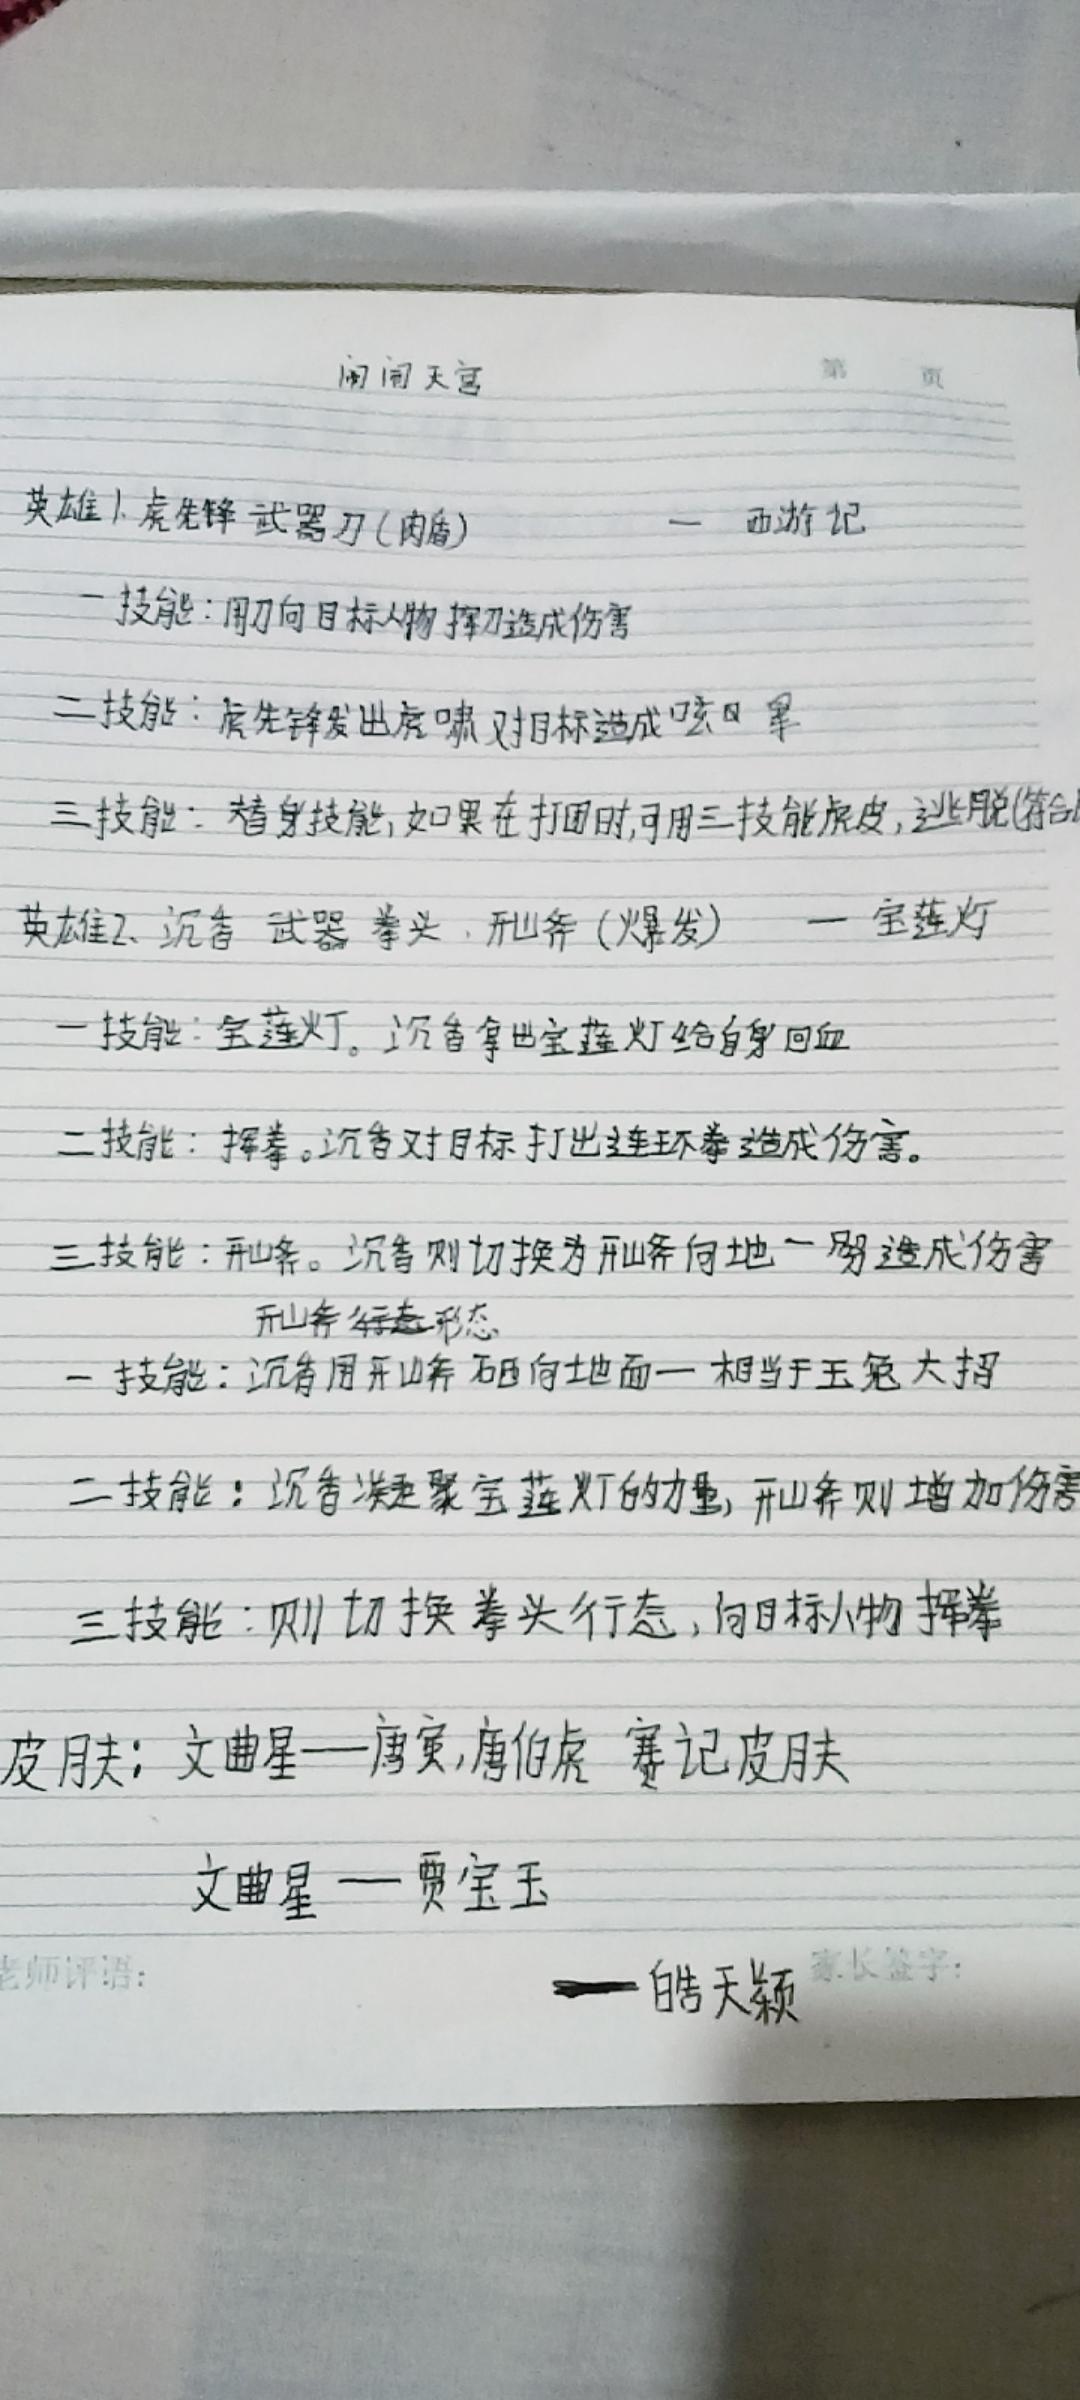 闹闹天宫
第 页
英雄1、虎先锋 武器刀(肉盾) — 西游记
一技能:用刀向目标人物挥刀造成伤害
二技能:虎先锋发出虎啸对目标造成
三技能:替身技能,如果在打团时,可用三技能虎皮,逃脱(符合
英雄2、沉香 武器 拳头、开山斧(爆发) — 宝莲灯
一技能:宝莲灯。沉香拿出宝莲灯给自身回血
二技能:挥拳。沉香对目标打出连环拳造成伤害。
三技能:开山斧。沉香则切换为开山斧向地一劈造成伤害
开山斧 形态
一技能:沉香用开山斧砸向地面一相当于玉兔大招
二技能:沉香凝聚宝莲灯的力量,开山斧则增加伤害
三技能:则切换拳头行态,向目标人物挥拳
皮肤:文曲星——唐寅,唐伯虎 赛记皮肤
文曲星——贾宝玉
老师评语: 家长签字:
—皓天颖